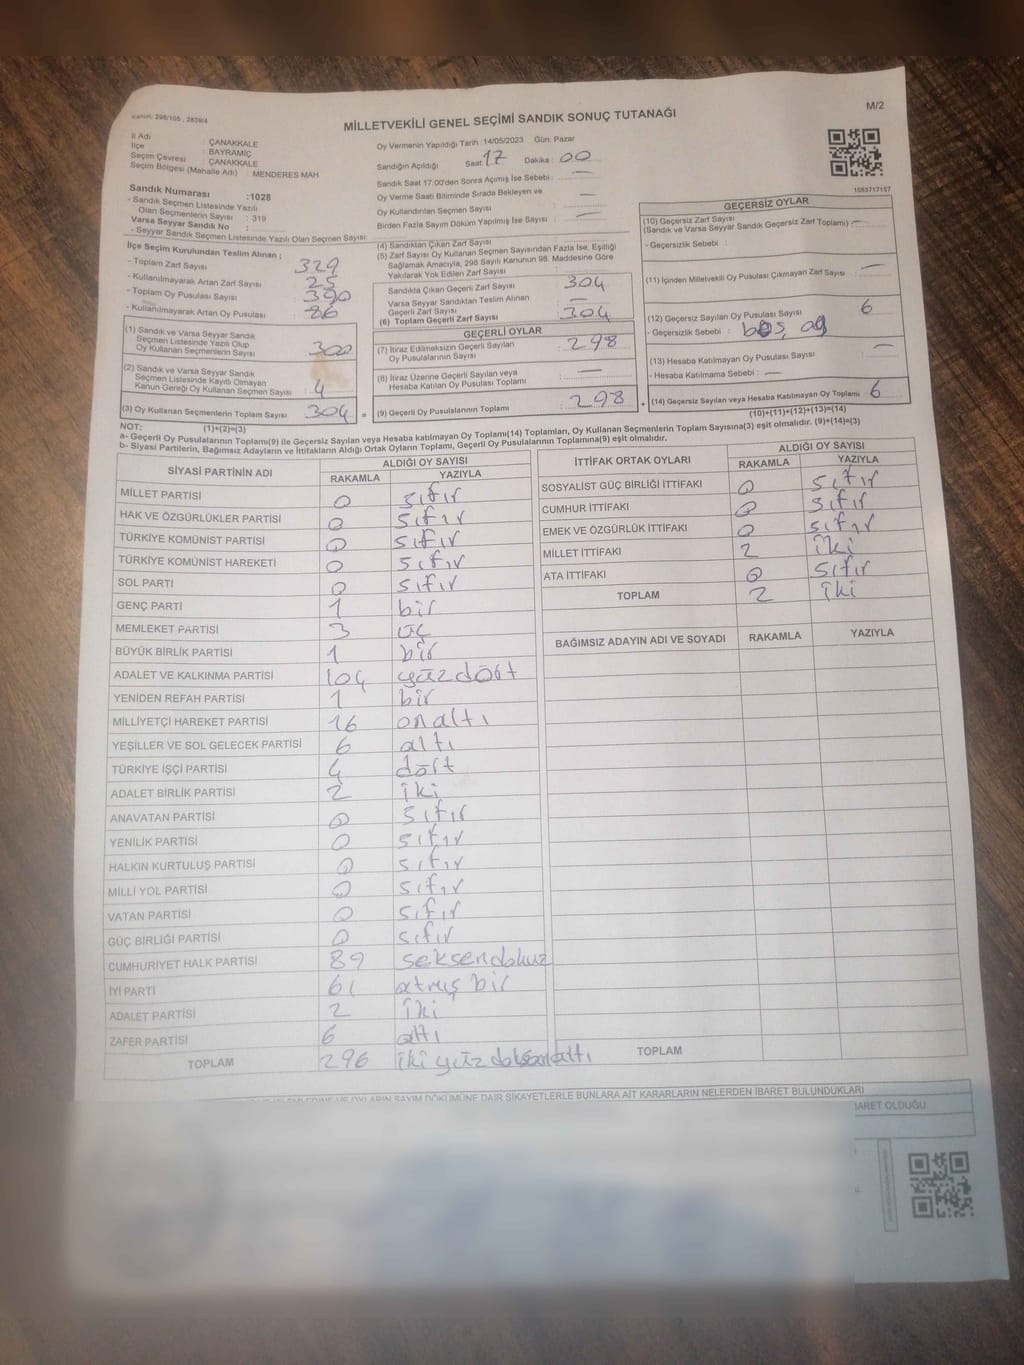 Kanun: 298/105, 2839/4
M/2
MİLLETVEKİLİ GENEL SEÇİMİ SANDIK SONUÇ TUTANAĞI
İl Adı : ÇANAKKALE
İlçe : BAYRAMİÇ
Seçim Çevresi : ÇANAKKALE
Seçim Bölgesi (Mahalle Adı) : MENDERES MAH.
Sandık Numarası :1028
- Sandık Seçmen Listesinde Yazılı
Olan Seçmenlerin Sayısı : 319
Varsa Seyyar Sandık No :
- Seyyar Sandık Seçmen Listesinde Yazılı Olan Seçmen Sayısı:
Oy Vermenin Yapıldığı Tarih :14/05/2023 Gün: Pazar
Sandığın Açıldığı Saat : 17 Dakika : 00
Sandık Saat 17.00'den Sonra Açılmış İse Sebebi : —
Oy Verme Saati Bitiminde Sırada Bekleyen ve
Oy Kullandırılan Seçmen Sayısı : —
Birden Fazla Sayım Döküm Yapılmış İse Sayısı : —
1093717157
İlçe Seçim Kurulundan Teslim Alınan ;
- Toplam Zarf Sayısı 329
- Kullanılmayarak Artan Zarf Sayısı 25
- Toplam Oy Pusulası Sayısı 390
- Kullanılmayarak Artan Oy Pusulası 86
(1) Sandık ve Varsa Seyyar Sandık
Seçmen Listesinde Yazılı Olup
Oy Kullanan Seçmenlerin Sayısı 300
(2) Sandık ve Varsa Seyyar Sandık
Seçmen Listesinde Kayıtlı Olmayan
Kanun Gereği Oy Kullanan Seçmen Sayısı 4
(3) Oy Kullanan Seçmenlerin Toplam Sayısı 304 =
(1)+(2)=(3)
(4) Sandıktan Çıkan Zarf Sayısı
(5) Zarf Sayısı Oy Kullanan Seçmen Sayısından Fazla İse, Eşitliği
Sağlamak Amacıyla, 298 Sayılı Kanunun 98. Maddesine Göre
Yakılarak Yok Edilen Zarf Sayısı
Sandıkta Çıkan Geçerli Zarf Sayısı 304
Varsa Seyyar Sandıktan Teslim Alınan
Geçerli Zarf Sayısı —
(6) Toplam Geçerli Zarf Sayısı 304
GEÇERLİ OYLAR
(7) İtiraz Edilmeksizin Geçerli Sayılan
Oy Pusulalarının Sayısı 298
(8) İtiraz Üzerine Geçerli Sayılan veya
Hesaba Katılan Oy Pusulası Toplamı —
(9) Geçerli Oy Pusulalarının Toplamı 298 +
GEÇERSİZ OYLAR
(10) Geçersiz Zarf Sayısı
(Sandık ve Varsa Seyyar Sandık Geçersiz Zarf Toplamı) —
- Geçersizlik Sebebi :
(11) İçinden Milletvekili Oy Pusulası Çıkmayan Zarf Sayısı —
(12) Geçersiz Sayılan Oy Pusulası Sayısı 6
- Geçersizlik Sebebi : boş, ag
(13) Hesaba Katılmayan Oy Pusulası Sayısı —
- Hesaba Katılmama Sebebi : —
(14) Geçersiz Sayılan veya Hesaba Katılmayan Oy Toplamı 6
(10)+(11)+(12)+(13)=(14)
NOT:
a- Geçerli Oy Pusulalarının Toplamı(9) ile Geçersiz Sayılan veya Hesaba katılmayan Oy Toplamı(14) Toplamları, Oy Kullanan Seçmenlerin Toplam Sayısına(3) eşit olmalıdır. (9)+(14)=(3)
b- Siyasi Partilerin, Bağımsız Adayların ve İttifakların Aldığı Ortak Oyların Toplamı, Geçerli Oy Pusulalarının Toplamına(9) eşit olmalıdır.
SİYASİ PARTİNİN ADI ALDIĞI OY SAYISI
RAKAMLA YAZIYLA
MİLLET PARTİSİ 0 sıfır
HAK VE ÖZGÜRLÜKLER PARTİSİ 0 sıfır
TÜRKİYE KOMÜNİST PARTİSİ 0 sıfır
TÜRKİYE KOMÜNİST HAREKETİ 0 sıfır
SOL PARTİ 0 sıfır
GENÇ PARTİ 1 bir
MEMLEKET PARTİSİ 3 üç
BÜYÜK BİRLİK PARTİSİ 1 bir
ADALET VE KALKINMA PARTİSİ 104 yüzdört
YENİDEN REFAH PARTİSİ 1 bir
MİLLİYETÇİ HAREKET PARTİSİ 16 onaltı
YEŞİLLER VE SOL GELECEK PARTİSİ 6 altı
TÜRKİYE İŞÇİ PARTİSİ 4 dört
ADALET BİRLİK PARTİSİ 2 iki
ANAVATAN PARTİSİ 0 sıfır
YENİLİK PARTİSİ 0 sıfır
HALKIN KURTULUŞ PARTİSİ 0 sıfır
MİLLİ YOL PARTİSİ 0 sıfır
VATAN PARTİSİ 0 sıfır
GÜÇ BİRLİĞİ PARTİSİ 0 sıfır
CUMHURİYET HALK PARTİSİ 89 seksendokuz
İYİ PARTİ 61 atmış bir
ADALET PARTİSİ 2 iki
ZAFER PARTİSİ 6 altı
TOPLAM 296 iki yüz doksanaltı
İTTİFAK ORTAK OYLARI ALDIĞI OY SAYISI
RAKAMLA YAZIYLA
SOSYALİST GÜÇ BİRLİĞİ İTTİFAKI 0 sıfır
CUMHUR İTTİFAKI 0 sıfır
EMEK VE ÖZGÜRLÜK İTTİFAKI 0 sıfır
MİLLET İTTİFAKI 2 iki
ATA İTTİFAKI 0 sıfır
TOPLAM 2 iki
BAĞIMSIZ ADAYIN ADI VE SOYADI RAKAMLA YAZIYLA
TOPLAM
VE OYLARIN SAYIM DÖKÜMÜNE DAİR ŞİKAYETLERLE BUNLARA AİT KARARLARIN NELERDEN İBARET BULUNDUKLARI
OLDUĞU